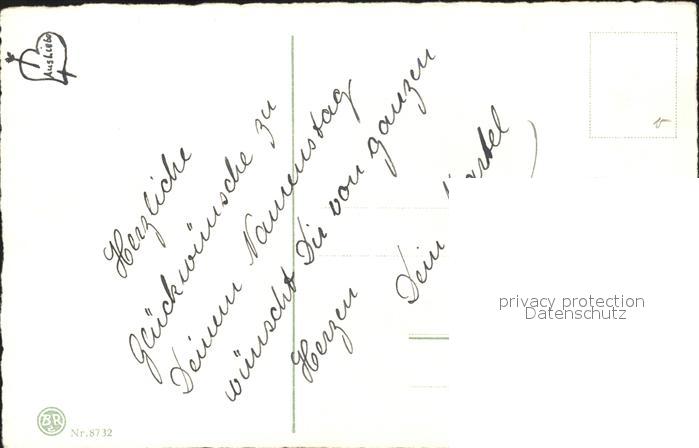 Aus Liebe
Herzliche
Glückwünsche zu
Deinem Namenstag
wünscht Dir von ganzen
Herzen Dein
privacy protection
Datenschutz
BR
Nr. 8732